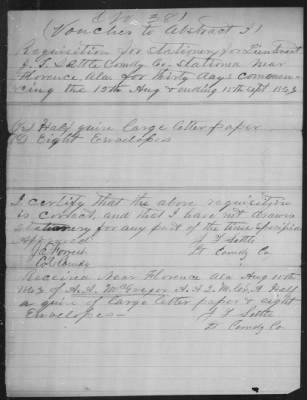 (Voucher to Abstract I)
Requisition for stationery for Lieutenant
J. T. Settle Comdg Co. stationed near
Florence, Ala for thirty days commen-
cing the 15th Aug & ending 15th Sept 1863
Half quire large letter paper
Eight Envelopes
I certify that the above requisition
is correct, and that I have not drawn
stationery for any part of the time specified
Approved J T Settle
Lt Comdg Co
Received Near Florence Ala Aug 15th
1863 of A. A. McGregor A.A.Q.M. C.S.A Half
a quire of large letter paper & eight
Envelopes— J T Settle
Lt Comdg Co